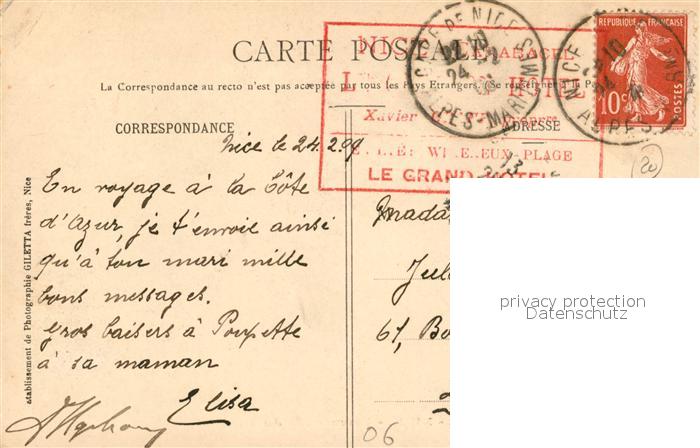 CARTE POSTALE
La Correspondance au recto n'est pas acceptée par tous les Pays Etrangers. (Se renseigner à la Poste)
CORRESPONDANCE
ADRESSE
NICE
HOTEL
Xavier
PLAGE
LE GRAND HOTEL
GARE DE NICE
ALPES-MARMES
NICE
ALPES
REPUBLIQUE FRANÇAISE
10c
POSTES
20
Nice le 24.2.09
En voyage à la Côte
d'Azur, je t'envoie ainsi
qu'à ton mari mille
bons messages.
Gros baisers à Poupette
à sa maman
Elisa
Mada
61, Bo
06
établissement de Photographie GILETTA frères, Nice
privacy protection
Datenschutz